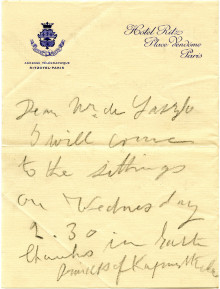 ADRESSE TÉLÉGRAPHIQUE
RITZOTEL-PARIS
Hotel Ritz
Place Vendôme
Paris
Dear Mr de Laszlo
I will come
to the sittings
on Wednesday
2.30
thanks in
Princess of Kapurthala